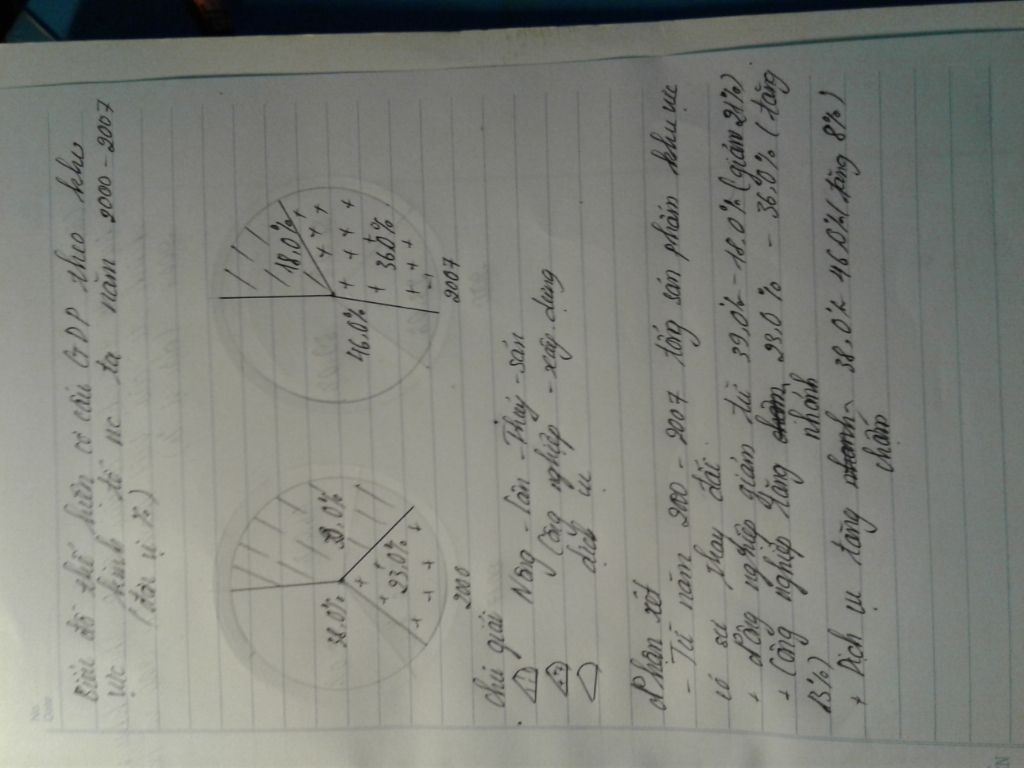 Biểu đồ thể hiện cơ cấu GDP theo khu
vực kinh tế nc ta năm 2000 - 2007
(đơn vị %)
38.0%
39.0%
23.0%
2000
46.0%
18.0%
36.0%
2007
chú giải
Nông - Lâm - Thuỷ - sản
Công nghiệp - xây dựng
dịch vụ
Nhận xét
- Từ năm 2000 - 2007 tổng sản phẩm khu vực
có sự thay đổi
+ Nông nghiệp giảm từ 39.0% - 18.0% (giảm 21%)
+ Công nghiệp tăng nhanh 23.0% - 36.0% (tăng
13%)
+ Dịch vụ tăng chậm 38.0% 46.0% (tăng 8%)